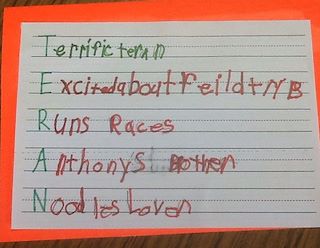 Terrific terran
Excited about Feild trip
Runs Races
Anthonys Brother
Noodles Lover